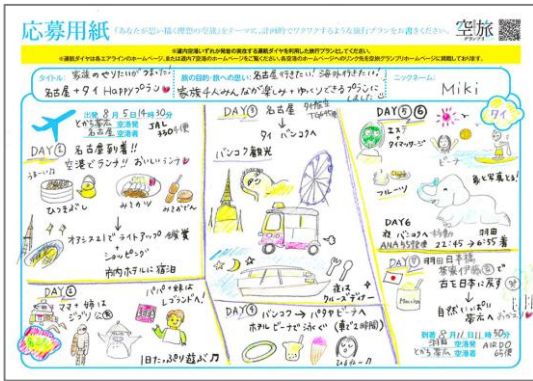 応募用紙
「あなたが思い描く理想の空旅」をテーマに、計画的でワクワクするような旅行プランをお書きください。
空旅
グランプリ
※道内空港いずれか発着の実在する運航ダイヤを利用した旅行プランとしてください。
※運航ダイヤは各エアラインのホームページ、または道内7空港のホームページをご覧ください。各空港のホームページへのリンク先を空旅グランプリホームページに掲載しております。
タイトル:
家族のやりたいがつまった
名古屋+タイHappyプラン
旅の目的・旅への思い:
名古屋行きたい!海外行きたい!
家族4人みんなが楽しみ+ゆっくりできるプランに
しました
ニックネーム:
Miki
出発 8月5日14時30分
とかち帯広 空港発 JAL
名古屋 空港着 3304便
DAY①
名古屋到着!!
空港でランチ!! おいしいランチ
うまーい
ひつまぶし
みそカツ
みそおでん
オアシス21でライトアップ鑑賞
+
ショッピング
市内ホテルに宿泊
DAY②
ママ+姉は
ジブリ
パパ+妹は
レゴランドへ!
1日たっぷり遊ぶ♫
DAY③
名古屋
タイ バンコクへ
バンコク観光
夜は
クルーズディナー
DAY④
バンコク → パタヤビーチへ
ホテルビーチで泳ぐ (車で2時間)
DAY⑤⑥
タイ
エステ
+
タイマッサージ
ビーチ
フルーツ
象と写真とる!
DAY6
夜 バンコクへ移動 羽田
22:45→6:55着
DAY⑦
羽田 日本橋
舌を日本に戻す
自然いっぱい
帯広へ
到着 8月11日11時30分
羽田 空港発 AIRDO
とかち帯広 空港着 65便